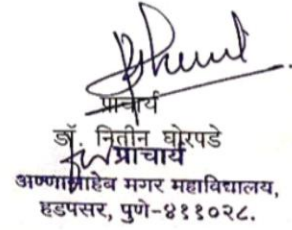 प्राचार्य
डॉ. नितीन घोरपडे
प्राचार्य
अण्णासाहेब मगर महाविद्यालय,
हडपसर, पुणे-४११०२८.